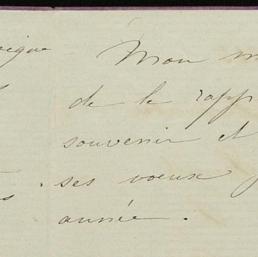 Mon m
de le rapp
souvenir et
ses voeux
année.